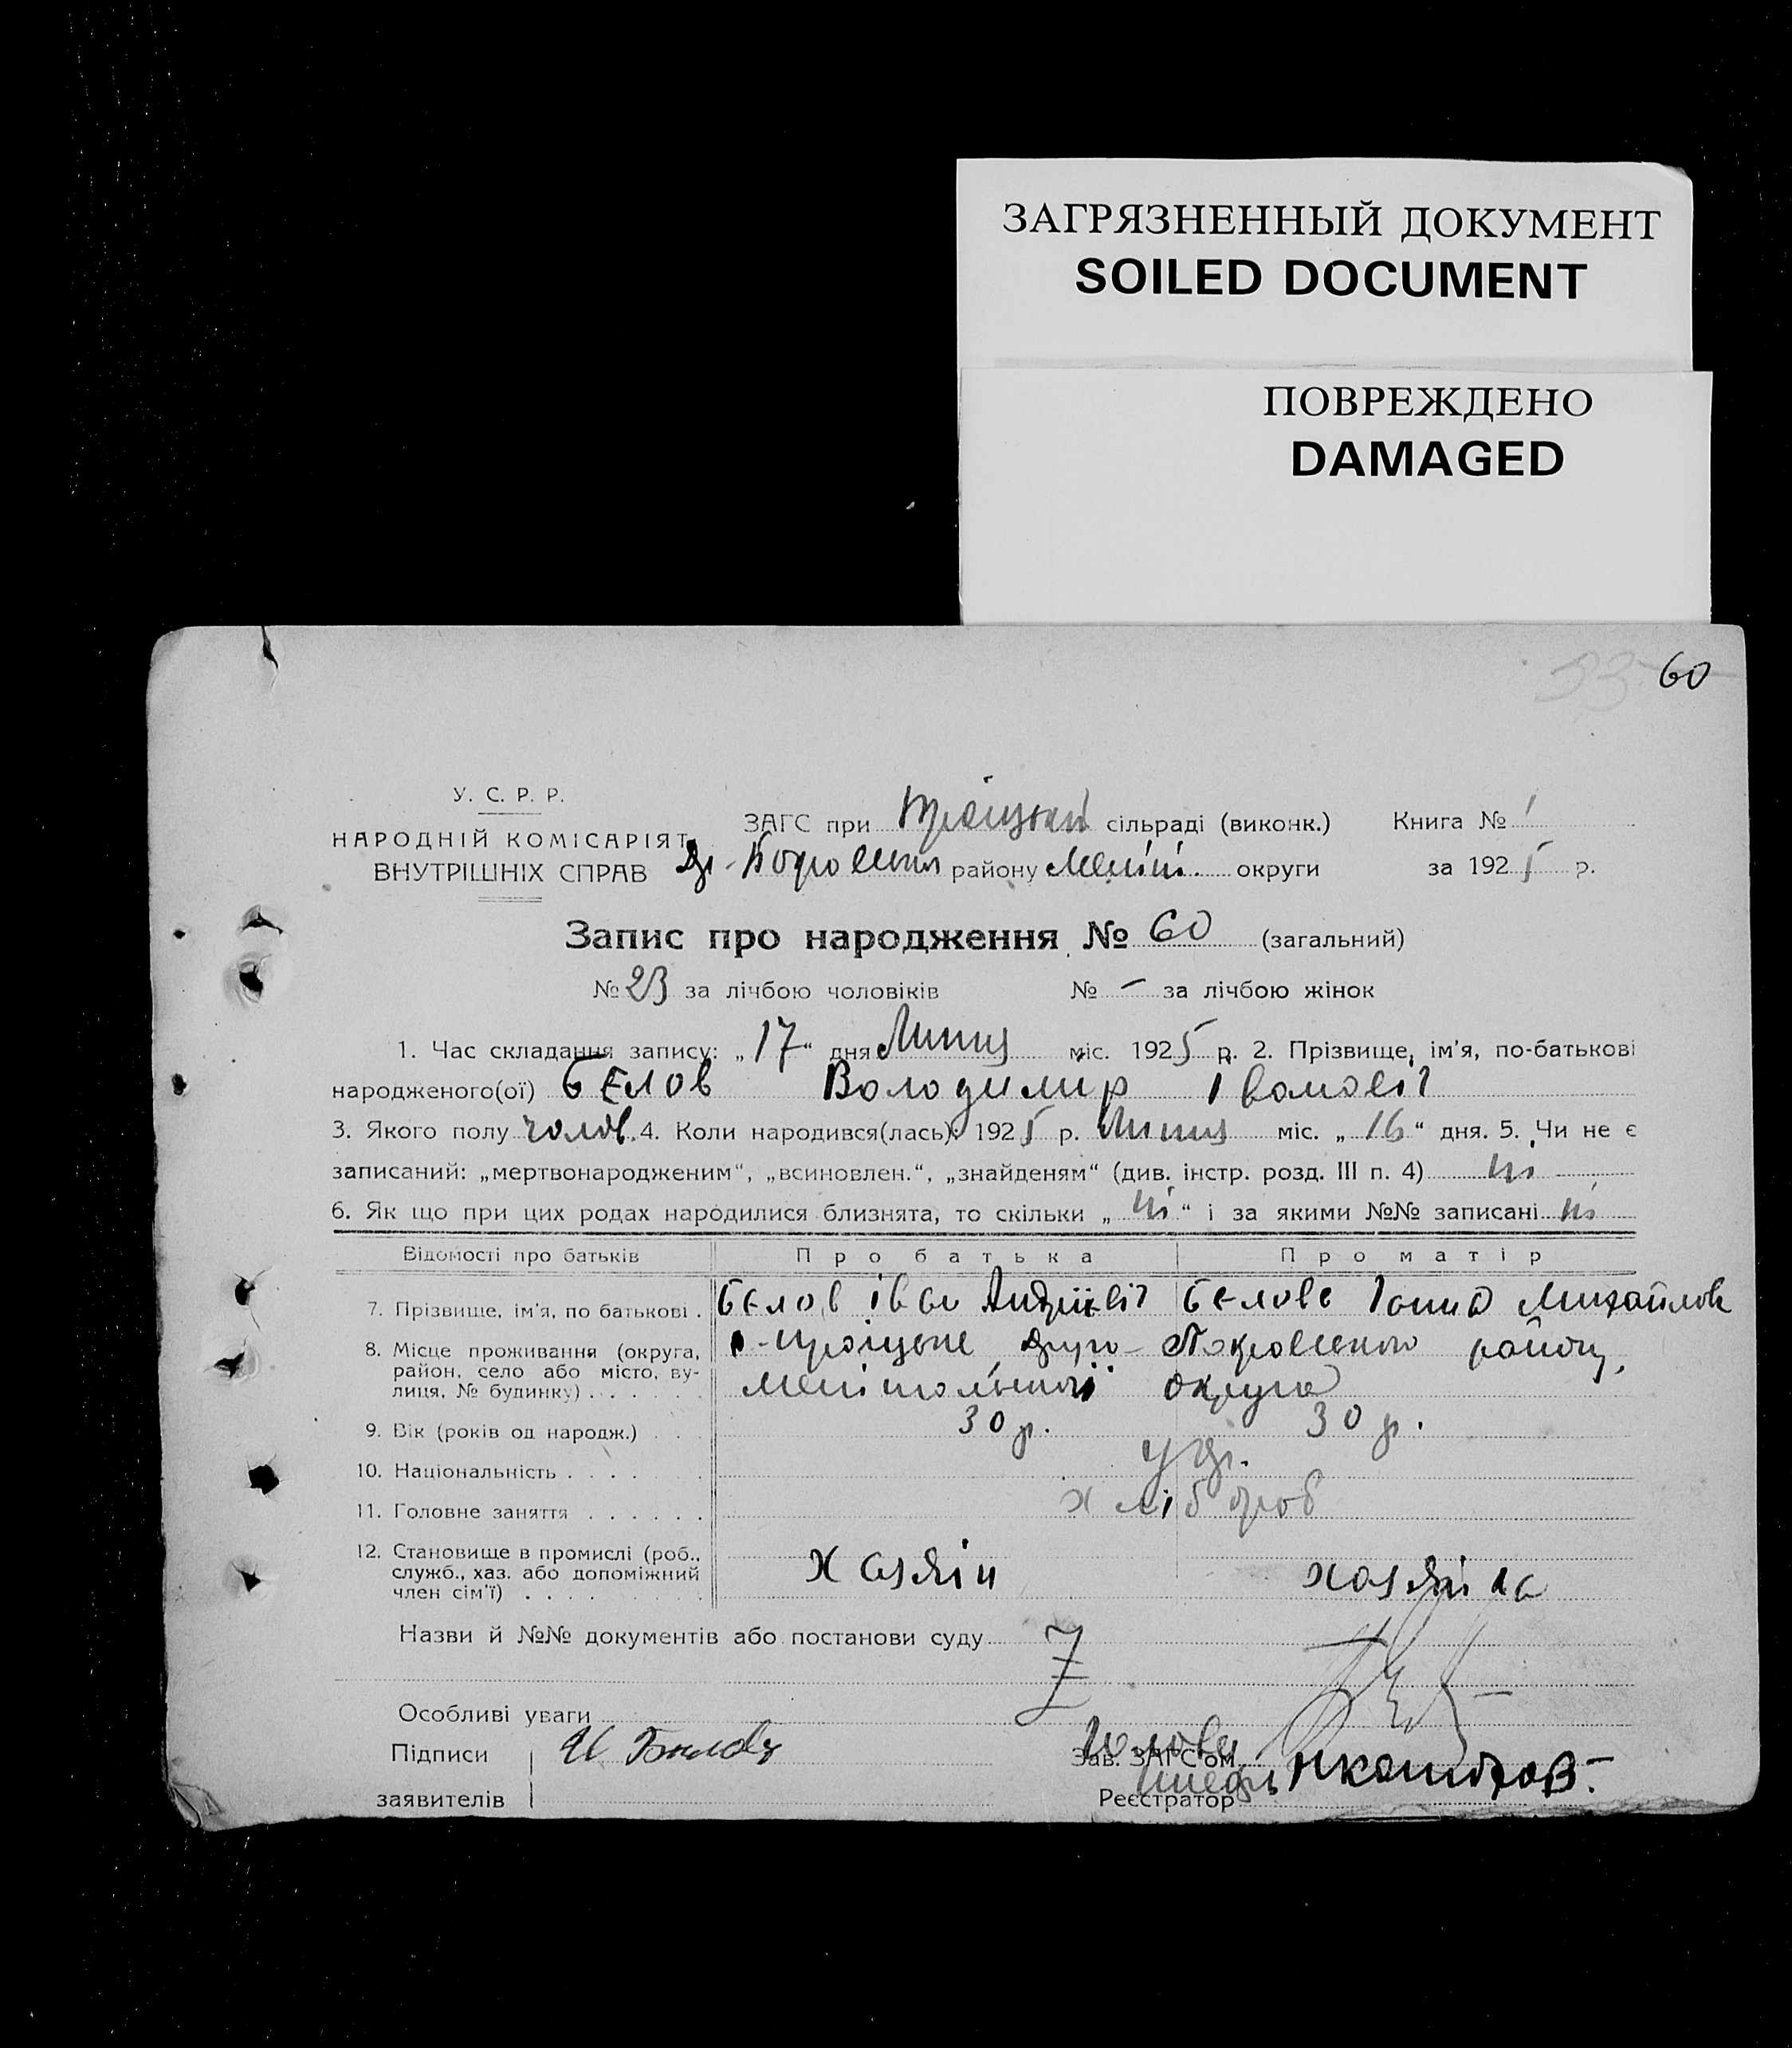 ЗАГРЯЗНЕННЫЙ ДОКУМЕНТ
SOILED DOCUMENT
ПОВРЕЖДЕНО
DAMAGED
60
У. С. Р. Р.
НАРОДНІЙ КОМІСАРІЯТ
ВНУТРІШНІХ СПРАВ
ЗАГС при Троїцькій сільраді (виконк.) Книга № 1
району Меліт. округи за 1925 р.
Запис про народження № 60 (загальний)
№ 23 за лічбою чоловіків № – за лічбою жінок
1. Час складання запису: „17“ дня Липця міс. 1925 р. 2. Прізвище, ім'я, по-батькові
народженого(ої) Бєлов Володимир Івановіч
3. Якого полу чолов. 4. Коли народився(лась): 1925 р. Липця міс. „16“ дня. 5. Чи не є
записаний: „мертвонародженим“, „всиновлен.“, „знайденям“ (див. інстр. розд. III п. 4) ні
6. Як що при цих родах народилися близнята, то скільки „ні“ і за якими №№ записані ні
Відомості про батьків Про батька Про матір
7. Прізвище, ім'я, по батькові . Бєлов Іван Андрієвіч Бєлова Михайлов
8. Місце проживання (округа, Троіцьке, Друго-Покровського району,
район, село або місто, ву- Мелітопольської округа
лиця, № будинку) . . . . . .
9. Вік (років од народж.) . . . 30 р. 30 р.
10. Національність . . . . . . укр.
11. Головне заняття . . . . . . хлібороб
12. Становище в промислі (роб., хазяін хазяіка
служб., хаз. або допоміжний
член сім'ї) . . . . . . . . .
Назви й №№ документів або постанови суду Z
Особливі уваги
Підписи
заявителів
Зав. ЗАГС'ом Голова
Реєстратор